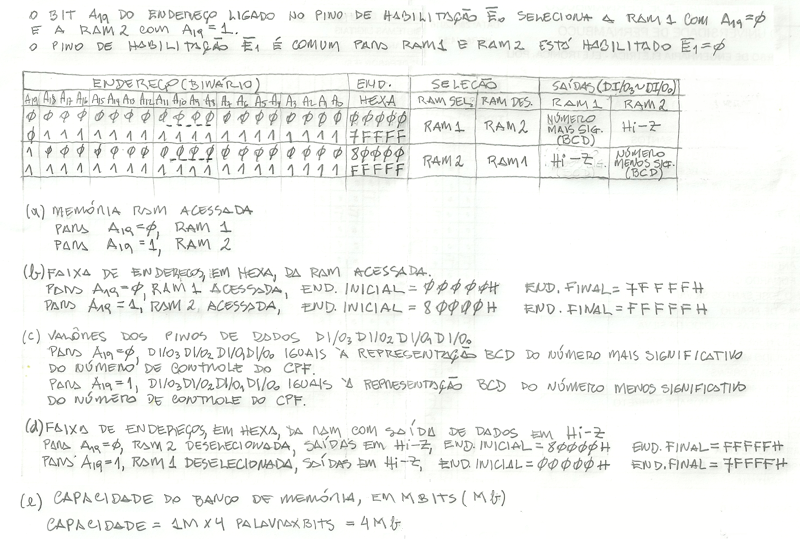 O BIT A19 DO ENDEREÇO LIGADO NO PINO DE HABILITAÇÃO E̅0 SELECIONA A RAM1 COM A19=∅
E A RAM2 COM A19=1.
O PINO DE HABILITAÇÃO E̅1 É COMUM PARA RAM1 E RAM2 ESTÁ HABILITADO E̅1=∅
ENDEREÇO (BINÁRIO) END. SELEÇÃO SAÍDAS (DI/O3~DI/O0)
A19 A18 A17 A16 A15 A14 A13 A12 A11 A10 A9 A8 A7 A6 A5 A4 A3 A2 A1 A0 HEXA RAM SEL. RAM DES. RAM1 RAM2
∅ ∅ ∅ ∅ ∅ ∅ ∅ ∅ ∅ ∅ ∅ ∅ ∅ ∅ ∅ ∅ ∅ ∅ ∅ ∅ ∅∅∅∅∅ RAM1 RAM2 NÚMERO MAIS SIG. (BCD) Hi-Z
∅ 1 1 1 1 1 1 1 1 1 1 1 1 1 1 1 1 1 1 1 7FFFF
1 ∅ ∅ ∅ ∅ ∅ ∅ ∅ ∅ ∅ ∅ ∅ ∅ ∅ ∅ ∅ ∅ ∅ ∅ ∅ 8∅∅∅∅ RAM2 RAM1 Hi-Z NÚMERO MENOS SIG. (BCD)
1 1 1 1 1 1 1 1 1 1 1 1 1 1 1 1 1 1 1 1 FFFFF
(a) MEMÓRIA RAM ACESSADA
PARA A19=∅, RAM 1
PARA A19=1, RAM 2
(b) FAIXA DE ENDEREÇOS, EM HEXA, DA RAM ACESSADA.
PARA A19=∅, RAM 1 ACESSADA, END. INICIAL = ∅∅∅∅∅H END. FINAL = 7FFFFH
PARA A19=1, RAM 2 ACESSADA, END. INICIAL = 8∅∅∅∅H END. FINAL = FFFFFH
(c) VALORES DOS PINOS DE DADOS DI/O3 DI/O2 DI/O1 DI/O0
PARA A19=∅, DI/O3 DI/O2 DI/O1 DI/O0 IGUAIS À REPRESENTAÇÃO BCD DO NÚMERO MAIS SIGNIFICATIVO
DO NÚMERO DE CONTROLE DO CPF.
PARA A19=1, DI/O3 DI/O2 DI/O1 DI/O0 IGUAIS À REPRESENTAÇÃO BCD DO NÚMERO MENOS SIGNIFICATIVO
DO NÚMERO DE CONTROLE DO CPF.
(d) FAIXA DE ENDEREÇOS, EM HEXA, DA RAM COM SAÍDA DE DADOS EM Hi-Z
PARA A19=∅, RAM 2 DESELECIONADA, SAÍDAS EM Hi-Z, END. INICIAL = 8∅∅∅∅H END. FINAL = FFFFFH
PARA A19=1, RAM 1 DESELECIONADA, SAÍDAS EM Hi-Z, END. INICIAL = ∅∅∅∅∅H END. FINAL = 7FFFFH
(e) CAPACIDADE DO BANCO DE MEMÓRIA, EM MBITS (Mb)
CAPACIDADE = 1M X 4 PALAVRAXBITS = 4Mb